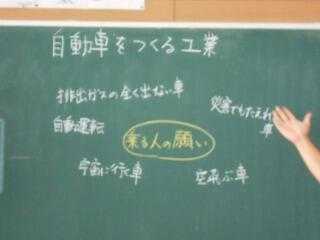 自動車をつくる工業
排出ガスの全く出ない車
災害でもたえれ
車
自動運転
乗る人の願い
宇宙に行く車
空飛ぶ車